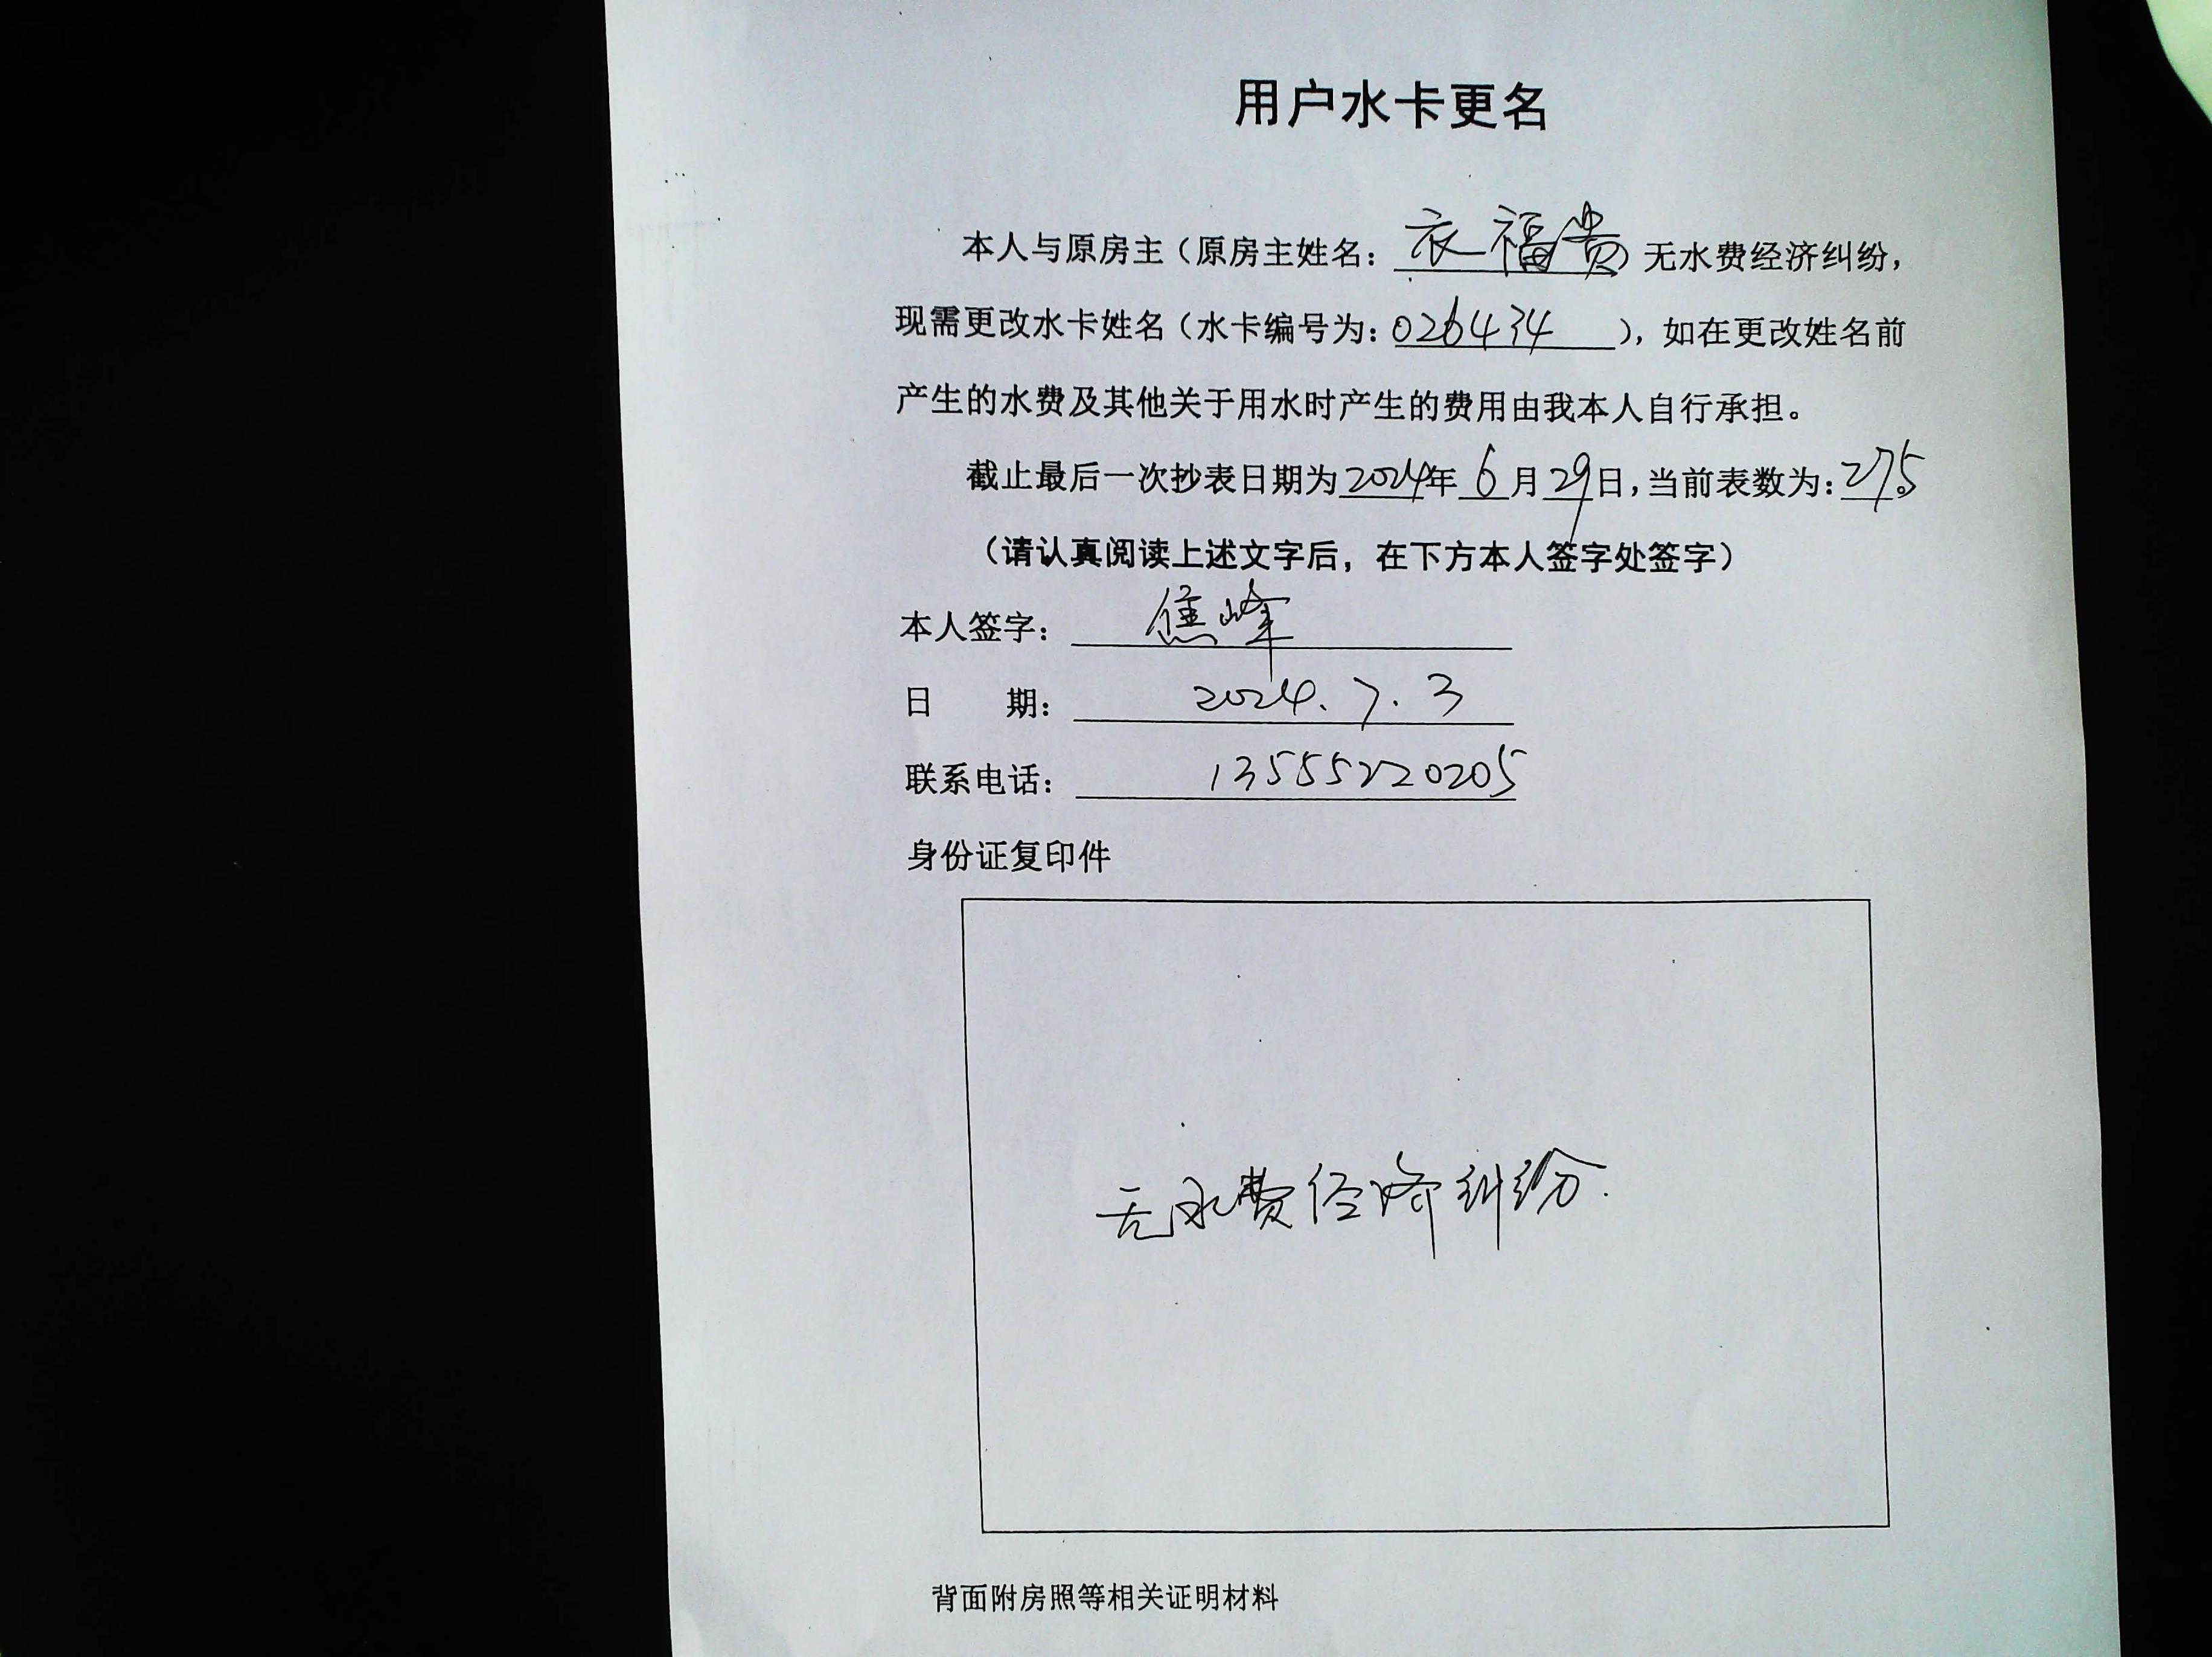 用户水卡更名
本人与原房主（原房主姓名：衣福贵）无水费经济纠纷，
现需更改水卡姓名（水卡编号为：026434），如在更改姓名前
产生的水费及其他关于用水时产生的费用由我本人自行承担。
截止最后一次抄表日期为2024年6月29日，当前表数为：275。
（请认真阅读上述文字后，在下方本人签字处签字）
本人签字：焦峰
日 期：2024.7.3
联系电话：13555220205
身份证复印件
无水费经济纠纷.
背面附房照等相关证明材料